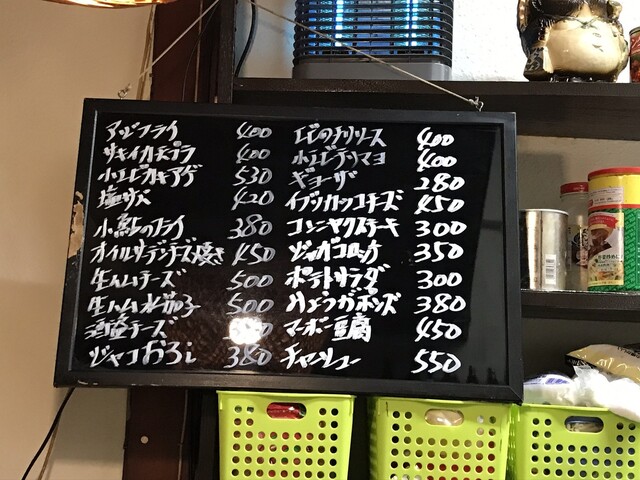 アジフライ 400
サキイカ天プラ 400
小エビカキアゲ 530
塩サバ 420
小鮎のフライ 380
オイルサーデンチーズ焼き 450
生ハムチーズ 500
生ハム水茄子 500
酒盗チーズ
ジャコおろし 380
エビのチリソース 400
小エビテリマヨ 400
ギョーザ 280
イブリガッコチーズ 450
コンニャクステーキ 300
ジャガコロッケ 350
ポテトサラダ 300
ポンズ 380
マーボー豆腐 450
チャーシュー 550